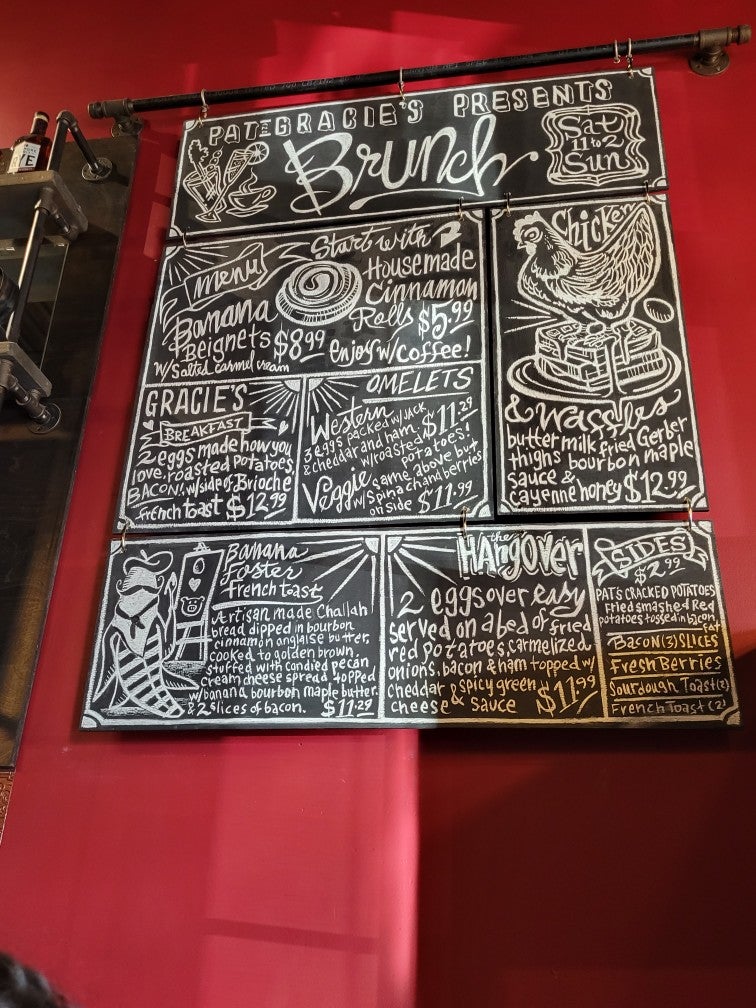 PAT & GRACIE'S PRESENTS
Brunch
Sat
11 to 2
Sun
menu
Banana
Beignets $8.99
w/Salted carmel cream
Start with
Housemade
Cinnamon
Rolls $5.99
enjoy w/coffee!
Chicken
& Waffles
buttermilk fried Gerber
thighs bourbon maple
sauce &
cayenne honey $12.99
GRACIE'S
BREAKFAST
2 eggs made how you
love, roasted potatoes,
BACON! w/side of Brioche
french toast $12.99
OMELETS
Western
3 eggs packed w/JACK
& cheddar and ham. $11.29
w/roasted potatoes!
Veggie same above but
w/Spinach and berries
on side $11.99
Banana
Foster
french toast
Artisan made Challah
bread dipped in bourbon
cinnamon anglaise butter,
cooked to golden brown,
stuffed with candied pecan
cream cheese spread topped
w/banana bourbon maple butter.
& 2 slices of bacon. $11.29
the
HANGOVER
2 eggs over easy
served on a bed of fried
red potatoes, carmelized
onions, bacon & ham topped w/
cheddar & spicy green
cheese sauce $11.99
SIDES
$2.99
PAT'S CRACKED POTATOES
fried smashed Red
potatoes tossed in bacon
fat
Bacon (3) SLICES
Fresh Berries
Sourdough Toast (2)
French Toast (2)
YE